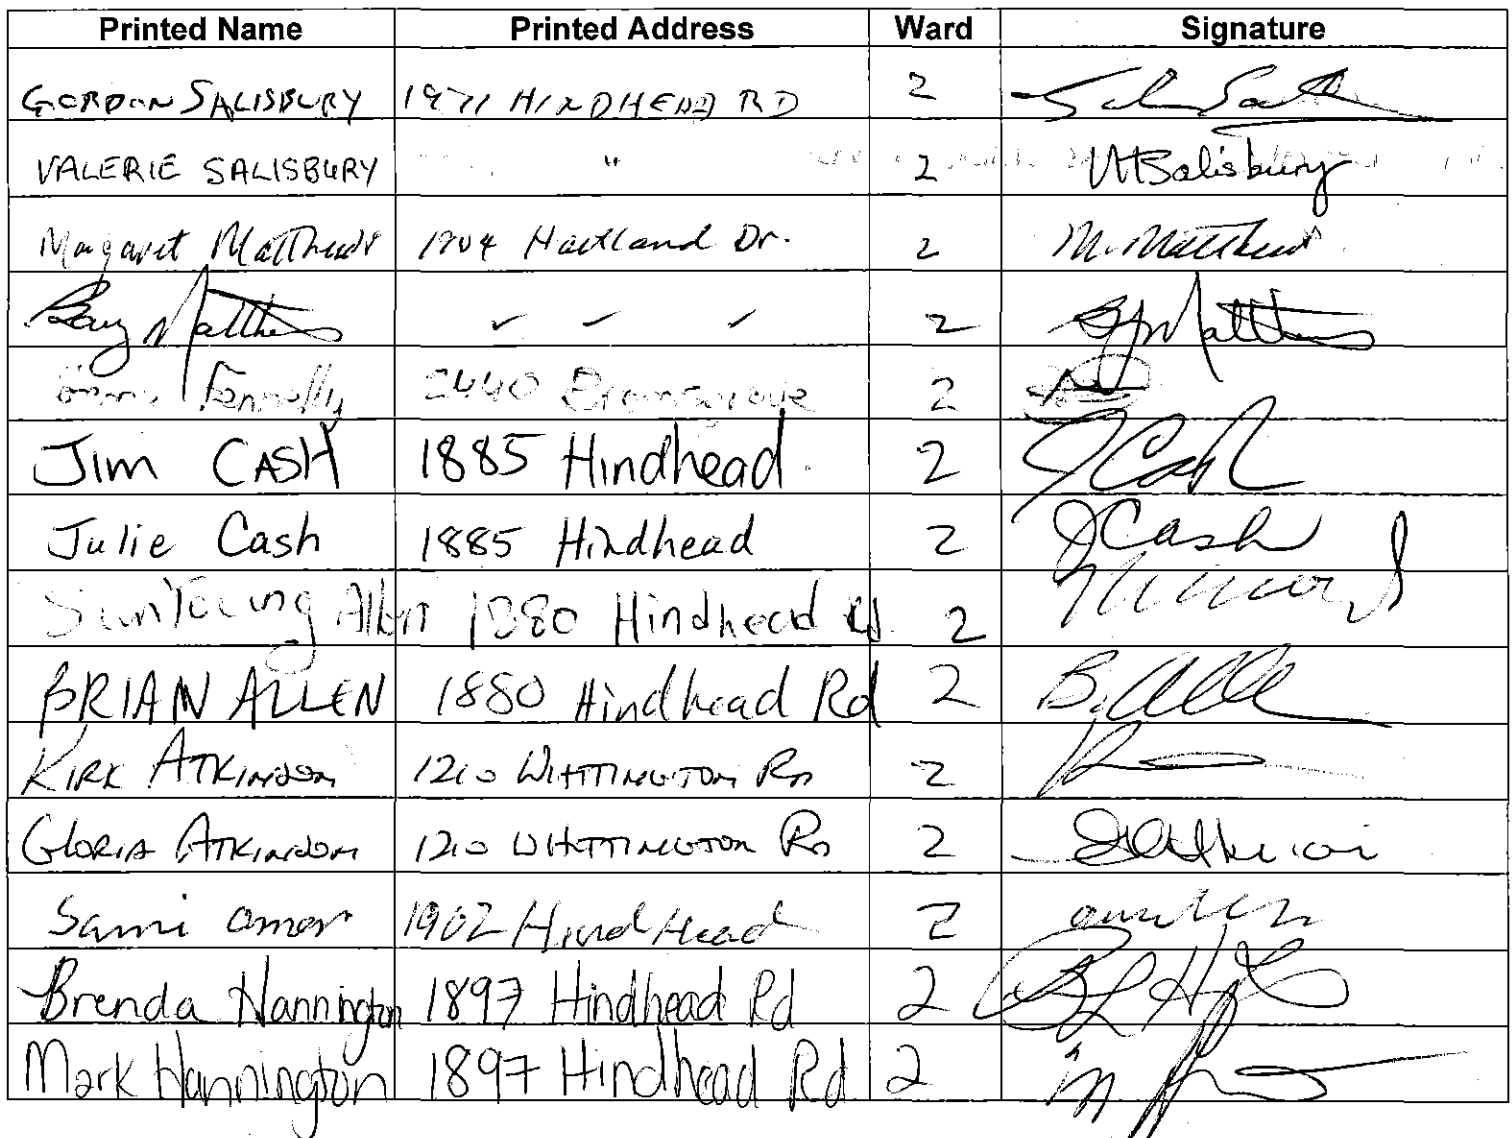 Printed Name Printed Address Ward Signature
GORDON SALISBURY 1971 HINDHEAD RD 2
VALERIE SALISBURY " 2 VHSalisbury
Margaret Matthews 1904 Hartland Dr. 2 M. Matthews
Matthews ✓ ✓ ✓ 2 Matthews
Fennelly 2440 Bromsgrove 2
Jim CASH 1885 Hindhead. 2 JCash
Julie Cash 1885 Hindhead 2 JCash
Allen 1880 Hindhead Rd. 2
BRIAN ALLEN 1880 Hindhead Rd 2 B. Alle
KIRK ATKINSON 1210 WHITTINGTON RD 2
GLORIA ATKINSON 1210 WHITTINGTON RD 2
Sami omer 1902 Hind Head 2
Brenda Hannington 1897 Hindhead Rd 2
Mark Hannington 1897 Hindhead Rd 2